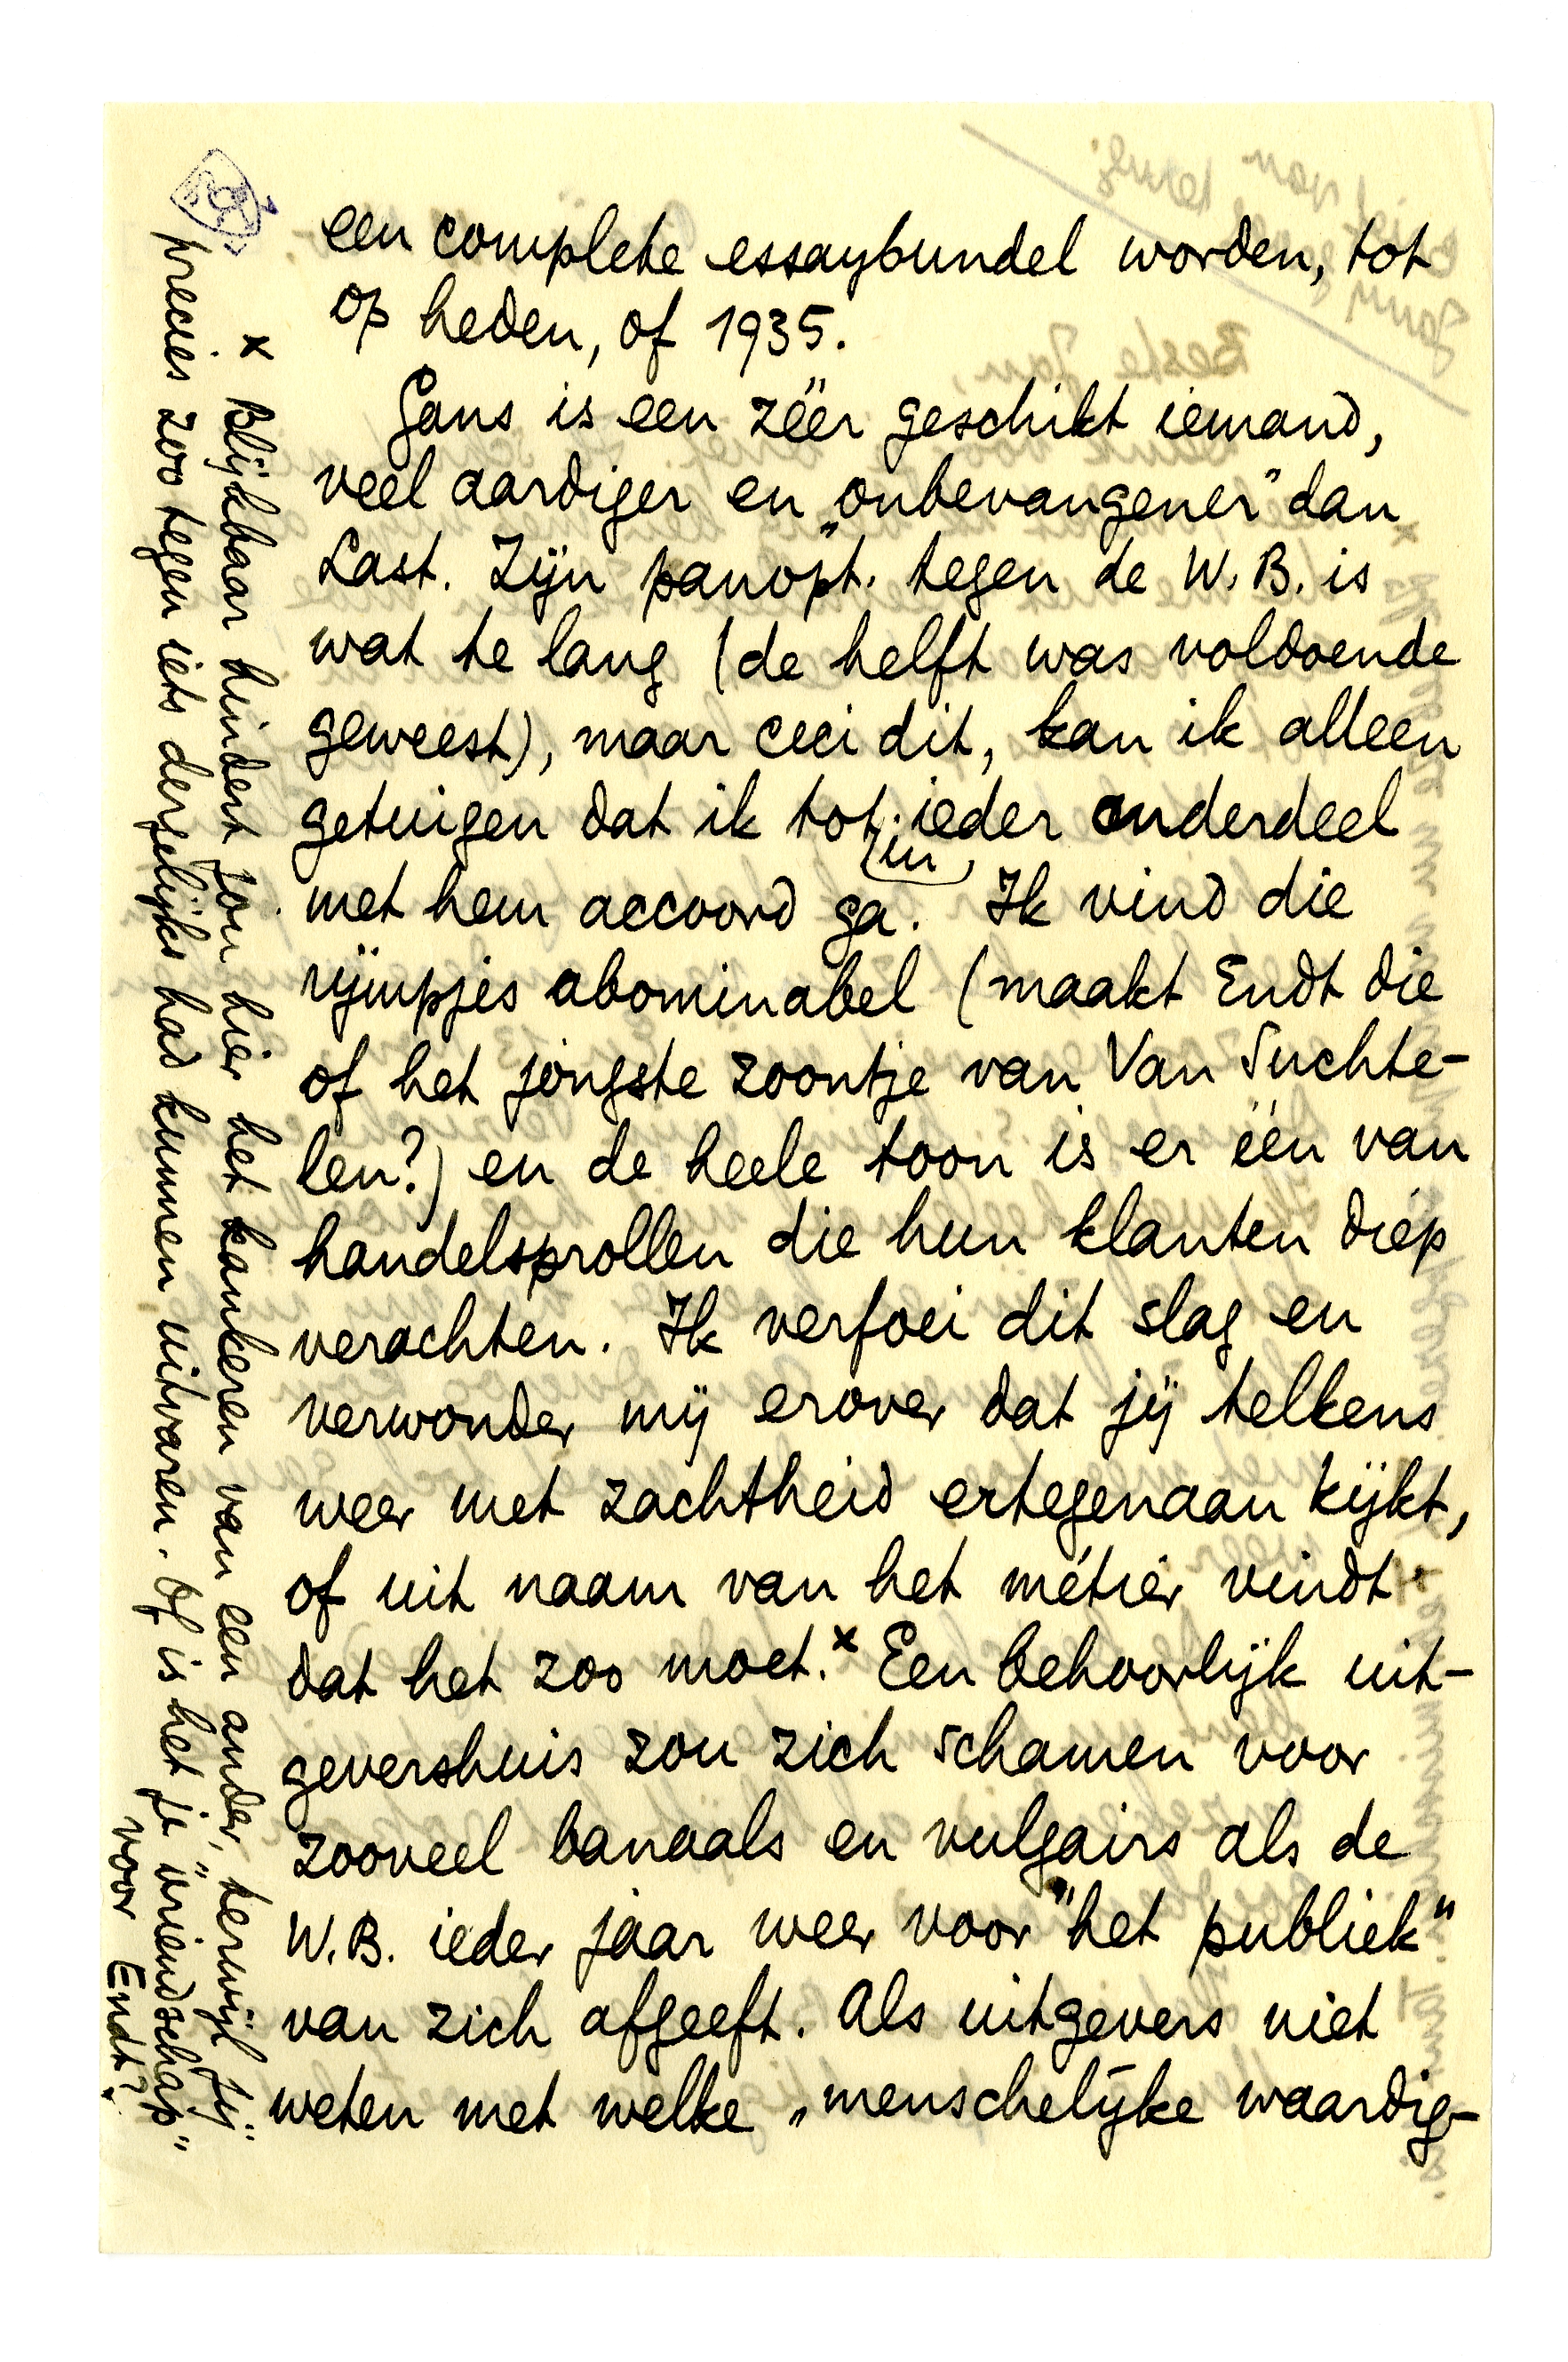 een complete essaybundel worden, tot
op heden, of 1935.
Gans is een zéér geschikt iemand,
veel aardiger en „onbevangener" dan
Last. Zijn panopt. tegen de W.B. is
wat te lang (de helft was voldoende
geweest), maar ceci dit, kan ik alleen
getuigen dat ik tot in ieder onderdeel
met hem accoord ga. Ik vind die
rijmpjes abominabel (maakt Endt die
of het jongste zoontje van Van Suchte-
len?) en de heele toon is er één van
handelsprollen die hun klanten diép
verachten. Ik verfoei dit slag en
verwonder mij erover dat jij telkens
weer met zachtheid ertegenaan kijkt,
of uit naam van het métier vindt
dat het zoo moet.x Een behoorlijk uit-
gevershuis zou zich schamen voor
zooveel banaals en vulgairs als de
W.B. ieder jaar weer voor "het publiek"
van zich afgeeft. Als uitgevers niet
weten met welke „menschelijke waardig-
x Blijkbaar hindert jou hier het kankeren van een ander, terwijl jij
precies zoo tegen iets dergelijks had kunnen uitvaren. Of is het je „vriendschap"
voor Endt?